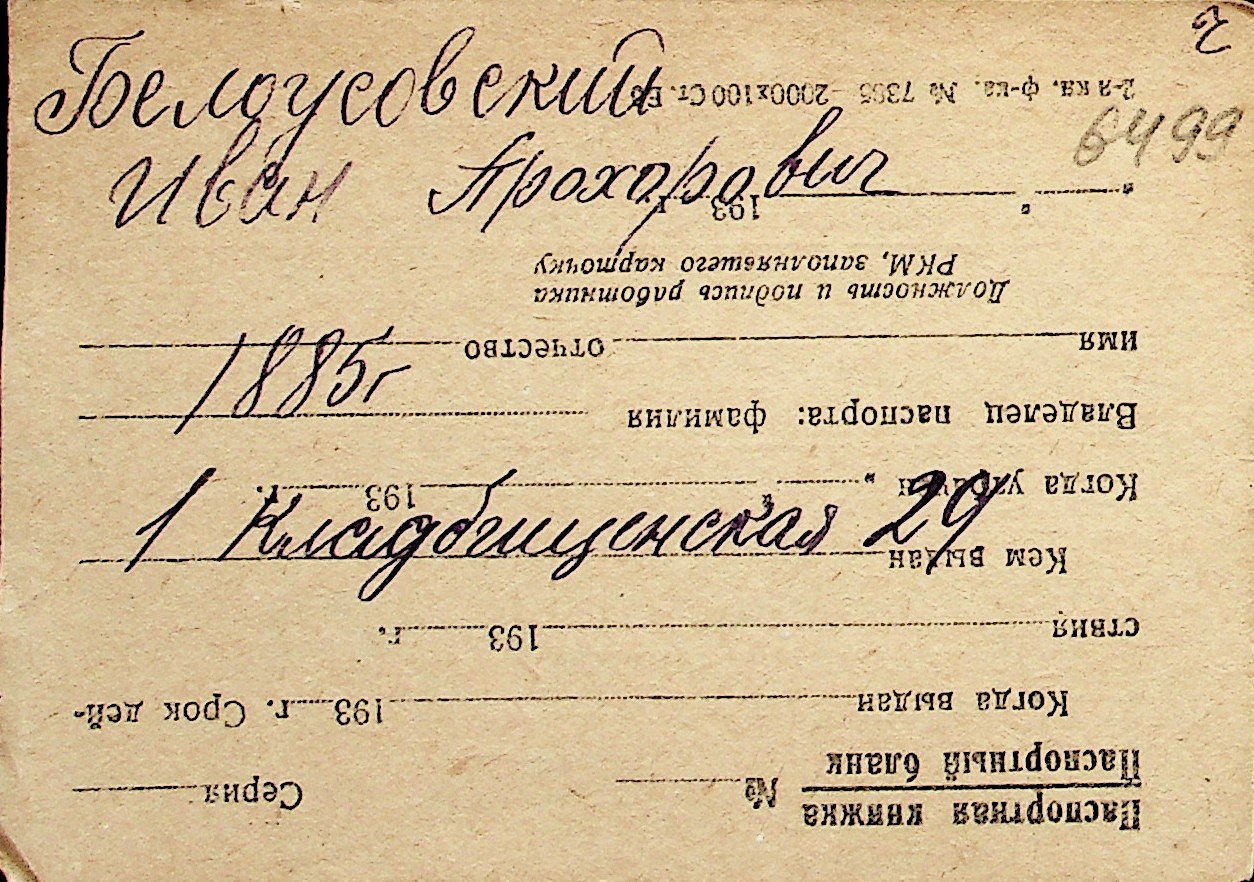 Белоусовский
Иван Прохорович
1885 г
1 Кладбищенская 29
6499
Паспортная книжка
Паспортный бланк
№ Серия
Когда выдан 193 г. Срок дей-
ствия 193 г.
Кем выдан
Когда утрачен „ “ 193 г.
Владелец паспорта: фамилия
имя отчество
Должность и подпись работника
РКМ, заполнявшего карточку
„ “ 193 г.
2-я кв. ф-ка. № 7395 —2000х100 Ст.